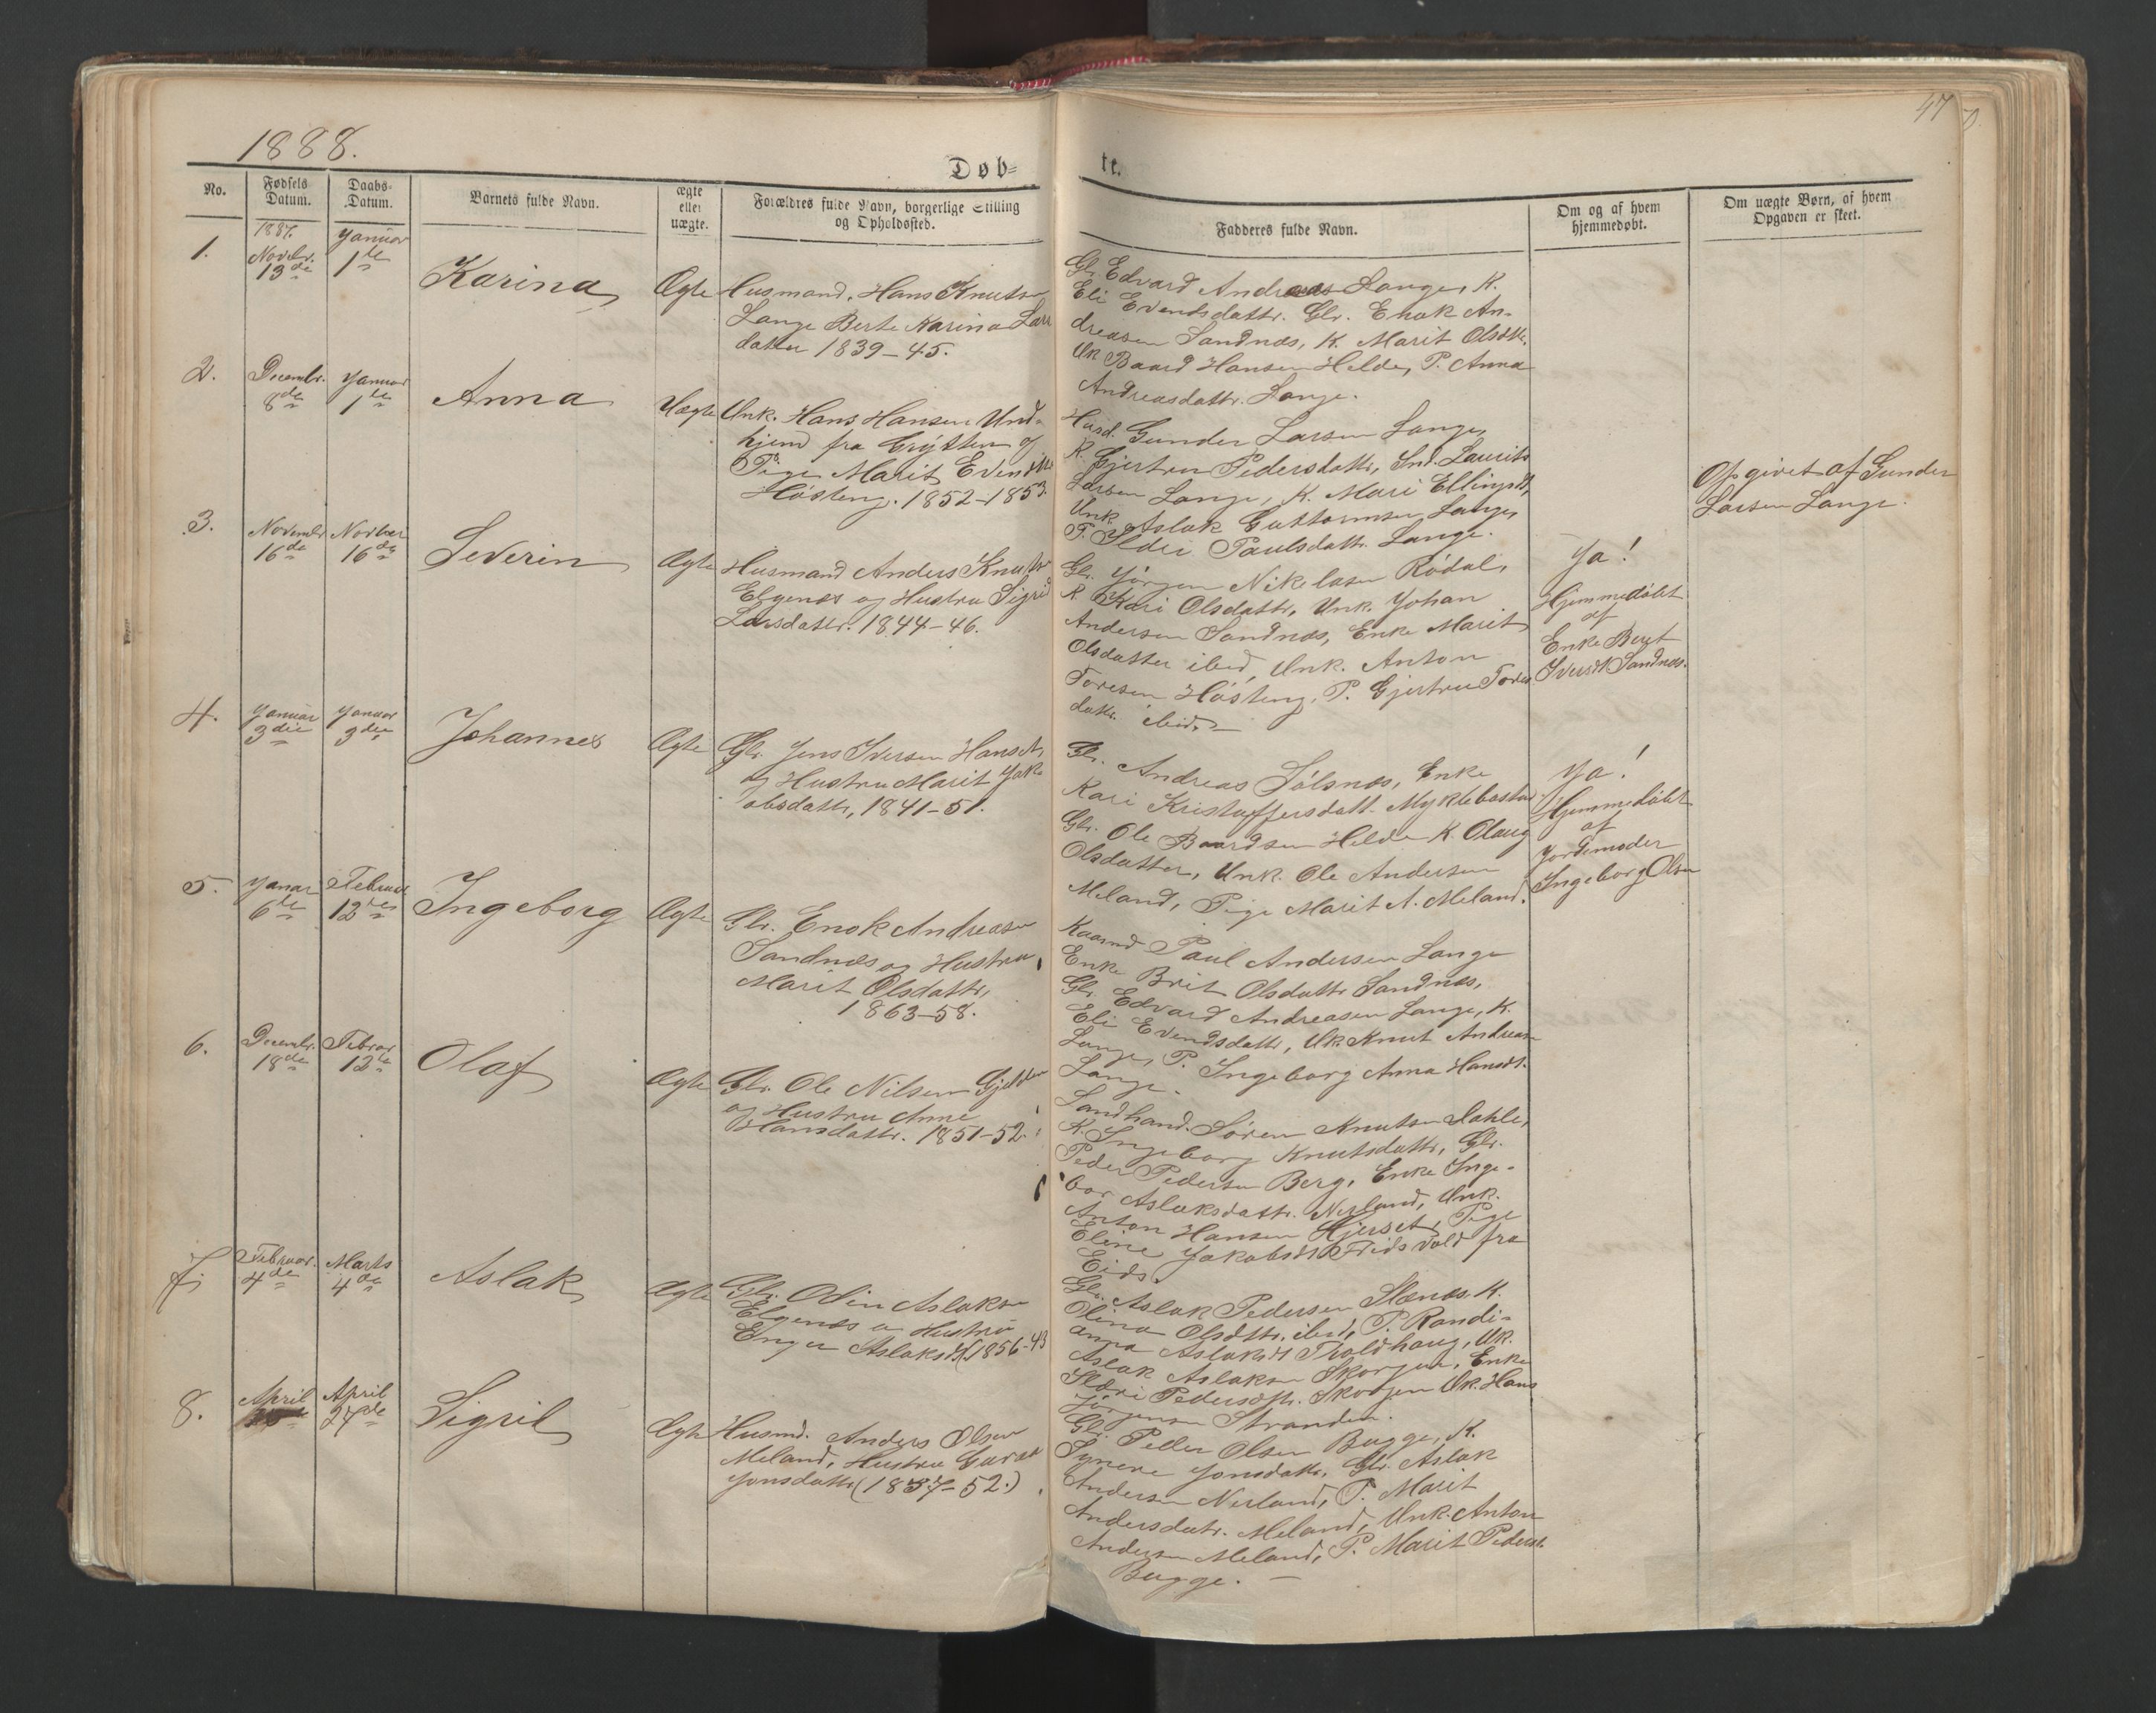 47
1888.
Døb=
te.
No.
Fødsels Datum.
Daabs-Datum.
Barnets fulde Navn.
ægte eller uægte.
Forældres fulde Navn, borgerlige Stilling og Opholdssted.
Fadderes fulde Navn.
Om og af hvem hjemmedøbt.
Om uægte Børn, af hvem Opgaven er skeet.
1.
1887.
Novbr.
13de
Januar
1te
Karina
Ægte
Husmand, Hans Knutsen
Lange Berte Karina Lars
datter 1839-45.
Gbr. Edvard Andreas Lange, K.
Eli Evendsdattr. Gbr. Enok An-
dreasen Sandnæs, K. Marit Olsdtr.
Uk Baard Hansen Helde, P. Anna
Andreasdattr. Lange.
2.
Decembr.
8de
Januar
1te
Anna
Uægte
Unk. Hans Hansen Und-
hjem fra Grytten og
Pige Marit Evendsdtr
Høsteng. 1852-1853.
Husd. Gunder Larsen Lange,
K. Gjertru Pedersdattr, Ind. Laurits
Larsen Lange, K. Mari Ellingsdt,
Unk. Aslak Guttormsen Lange,
P. Sldri Paulsdattr. Lange.
Opgivet af Gunder
Larsen Lange.
3.
Novembr
16de
Novber
16de
Severin
Ægte
Husmand Anders Knutsen
Elgenæs og Hustru Sigrid
Larsdattr. 1844-46.
Gbr. Jørgen Nikolasen Rødal,
K. Kari Olsdattr, Unk. Johan
Andersen Sandnæs, Enke Marit
Olsdatter ibid, Unk. Anton
Toresen Høsteng, P. Gjertru Tores
dattr. ibid. —
Ja!
Hjemmedøbt
af
Enke Beret
Iversdt Sandnæs.
4.
Januar
3die
Januar
3die
Johannes
Ægte
Gbr. Jens Iversen Hanset,
og Hustru Marit Jak-
obsdattr, 1841-51.
Gbr. Andreas Sølsnæs, Enke
Kari Kristoffersdatt. Myklebostad
Gbr. Ole Baardsen Helde K. Olaug
Olsdatter, Unk. Ole Andersen
Meland, Pige Marit A. Meland.
Ja!
Hjemmedøbt
af
Jordemoder
Ingeborg Olsen
5.
Januar
6te
Februar
12te
Ingeborg
Ægte
Gbr. Enok Andreasen
Sandnæs og Hustru
Marit Olsdattr,
1863-58.
Kaarmd Paul Andersen Lange
Enke Brit Olsdattr Sandnæs,
Gbr. Edvard Andreasen Lange, K.
Eli Evendsdattr, Uk. Knut Andreasen
Lange, P. Ingeborg Anna Hansdt.
Lange.
6.
Decembr.
18de
Februar
12te
Olaf
Ægte
Gbr. Ole Nilsen Gjelden
og Hustru Anne
Hansdattr. 1851-52.
Landhand. Søren Knutsen Dahle,
K. Ingeborg Knutsdattr, Gbr.
Peder Pedersen Berg, Enke Inge-
bor Aslaksdattr. Nerland, Unk.
Anton Hansen Hjerset, Pige
Eline Jakobsdt Fridsvold fra
Eids.
7.
Februar.
4de
Marts
4de
Aslak
Ægte
Gbr. Odin Aslaksen
Elgenæs og Hustru
Inger Aslaksdt (1856-43
Gbr. Aslak Pedersen Slenæs, K.
Olina Olsdttr. ibid, P. Randi-
anna Aslaksdt Troldhaug, Uk.
Aslak Aslaksen Skorgen, Enke
Sldri Pedersdtr. Skorgen Uk. Hans
Jørgensen Stranden.
8.
April
April
27de
Sigril
Ægte
Husmd. Anders Olsen
Meland, Hustru Guruan
Jonsdattr. (1837-52.)
Gbr. Peder Olsen Bugge, K.
Synere Jonsdattr, Gbr. Aslak
Andersen Nerland, P. Marit
Andersdatr. Meland, Unk. Anton
Andersen Meland, P. Marit Pedersdt.
Bugge. —